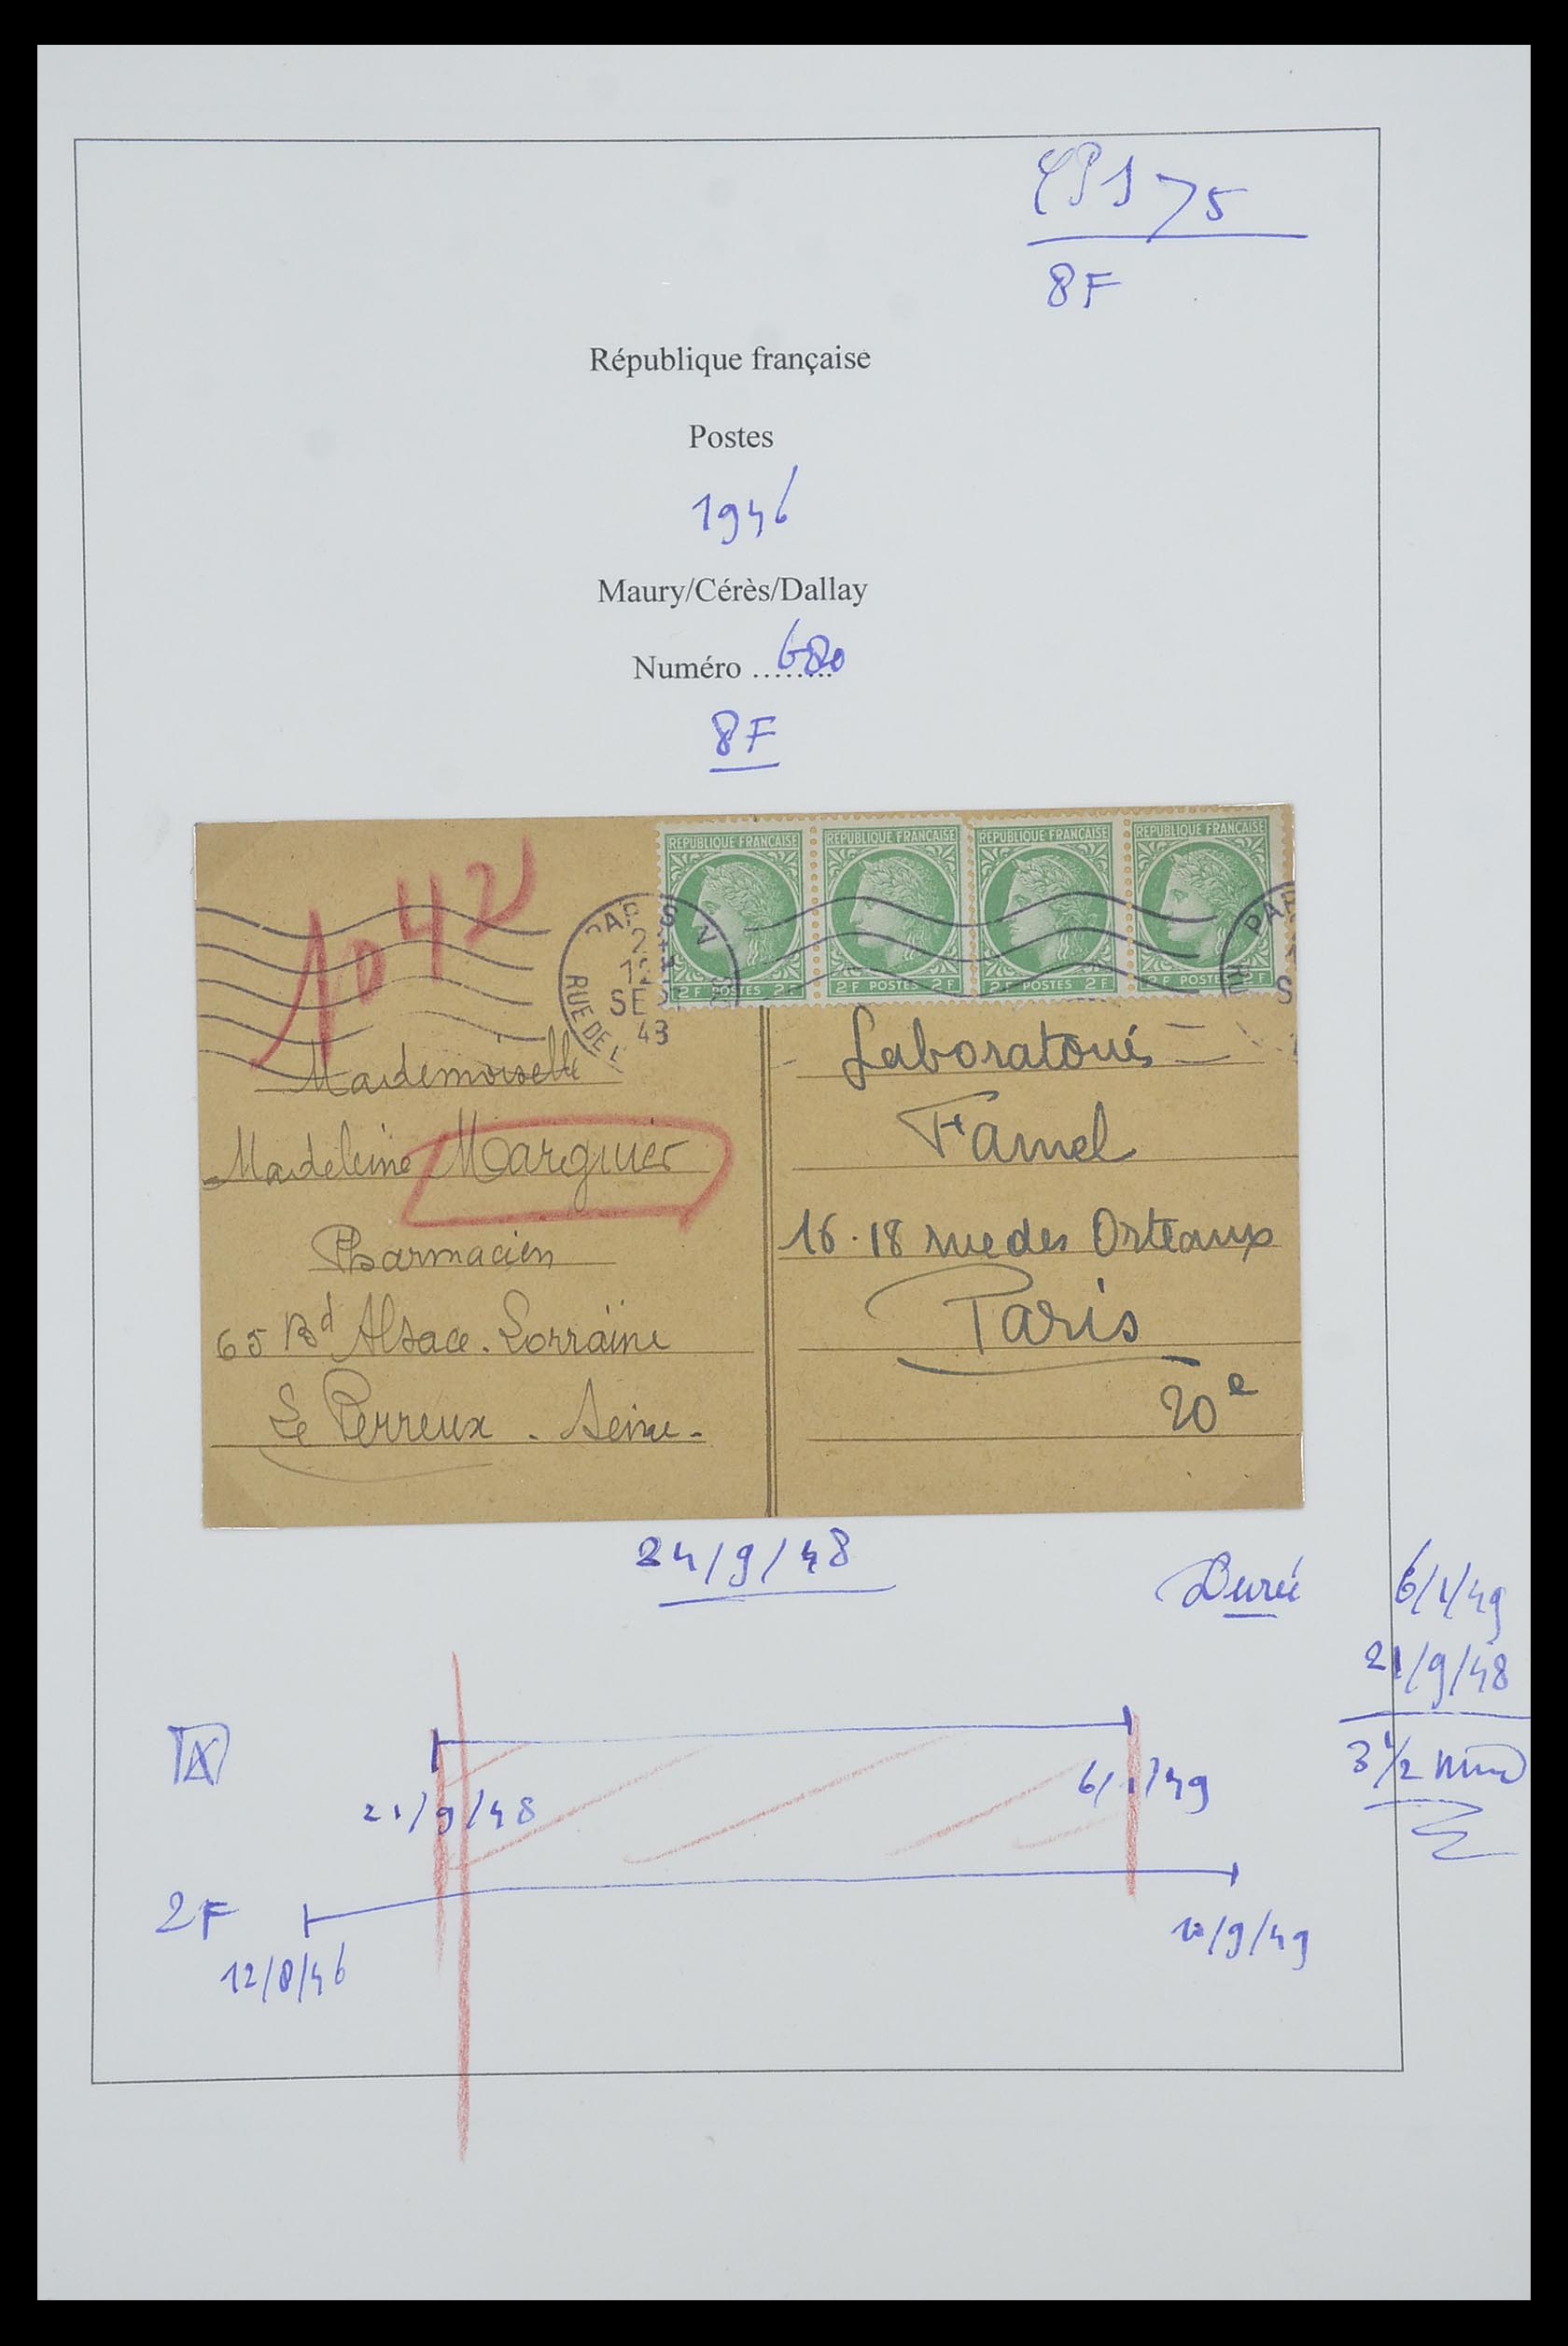 75
8F
République française
Postes
1946
Maury/Cérès/Dallay
Numéro ........ 680
8F
1042
REPUBLIQUE FRANÇAISE REPUBLIQUE FRANÇAISE REPUBLIQUE FRANÇAISE REPUBLIQUE FRANÇAISE
2F POSTES 2F 2F POSTES 2F 2F POSTES 2F 2F POSTES 2F
RUE DE L
Mademoiselle
Madeleine Marguier
Pharmacien
65 Bd Alsace-Lorraine
Le Perreux - Seine -
Laboratoires
Famel
16-18 rue des Orteaux
Paris
20e
24/9/48
Durée
6/1/49
21/9/48
3 1/2
A
21/9/48
6/1/49
2F
12/8/46
10/9/49